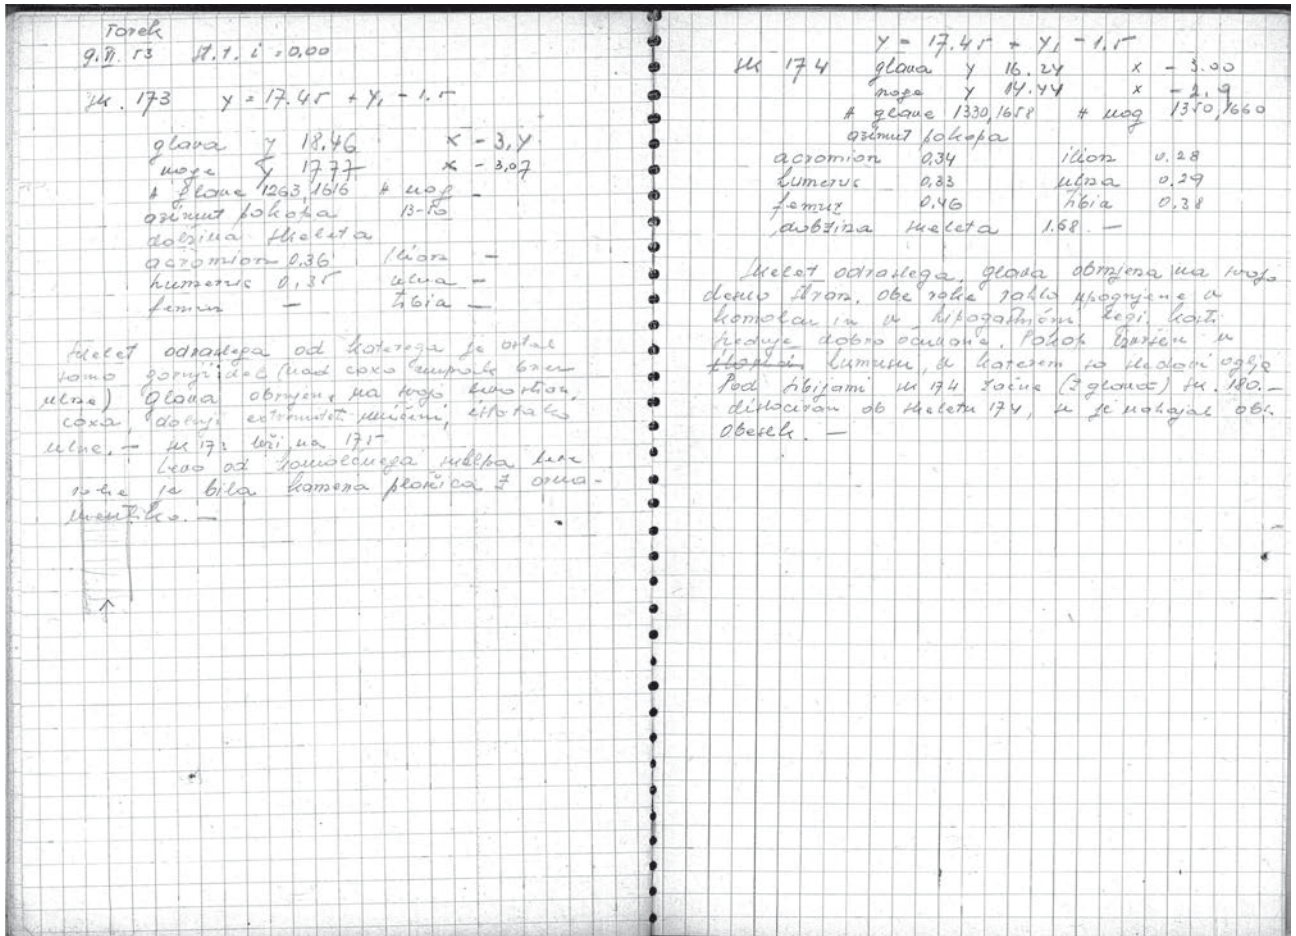 Torek
9.II.53 St.t. i = 0,00
sk. 173 y = 17.45 + y, - 1.5
glava y 18.46 x - 3,4
noge y 17.77 x - 3,07
# glave 1263, 1616 # nog -
azimut pokopa 13-50
dolžina skeleta
acromion 0,36 ilion -
humerus 0,35 ulna -
femur - tibia -
skelet odraslega od katerega je ostal
samo gornji del (nad coxo brez
ulne) glava obrnjena na svojo stran,
coxa, dolnji uničeni, istotako
ulne. - sk 173 leži na 175
levo od komolčnega sklepa leve
roke je bila kamena ploščica z orna-
mentiko. -
y = 17.45 + y, - 1.5
sk 174 glava y 16.24 x - 3.00
noge y 14.44 x - 2,9
# glave 1330,1658 # nog 1350,1660
azimut pokopa
acromion 0,34 ilion 0.28
humerus 0,33 ulna 0.29
femur 0,46 tibia 0.38
dolžina skeleta 1.68. -
skelet odraslega. glava obrnjena na svojo
desno stran. Obe roke rahlo upognjene v
komolcu in v hipogastrični legi. kosti
srednje dobro ohranjene. Pokop izvršen v
humusu, v katerem so sledovi oglja
Pod tibijami sk 174 začne (z glavo) sk. 180. -
dislociran ob skeletu 174, se je nahajal obs.
obesek. -